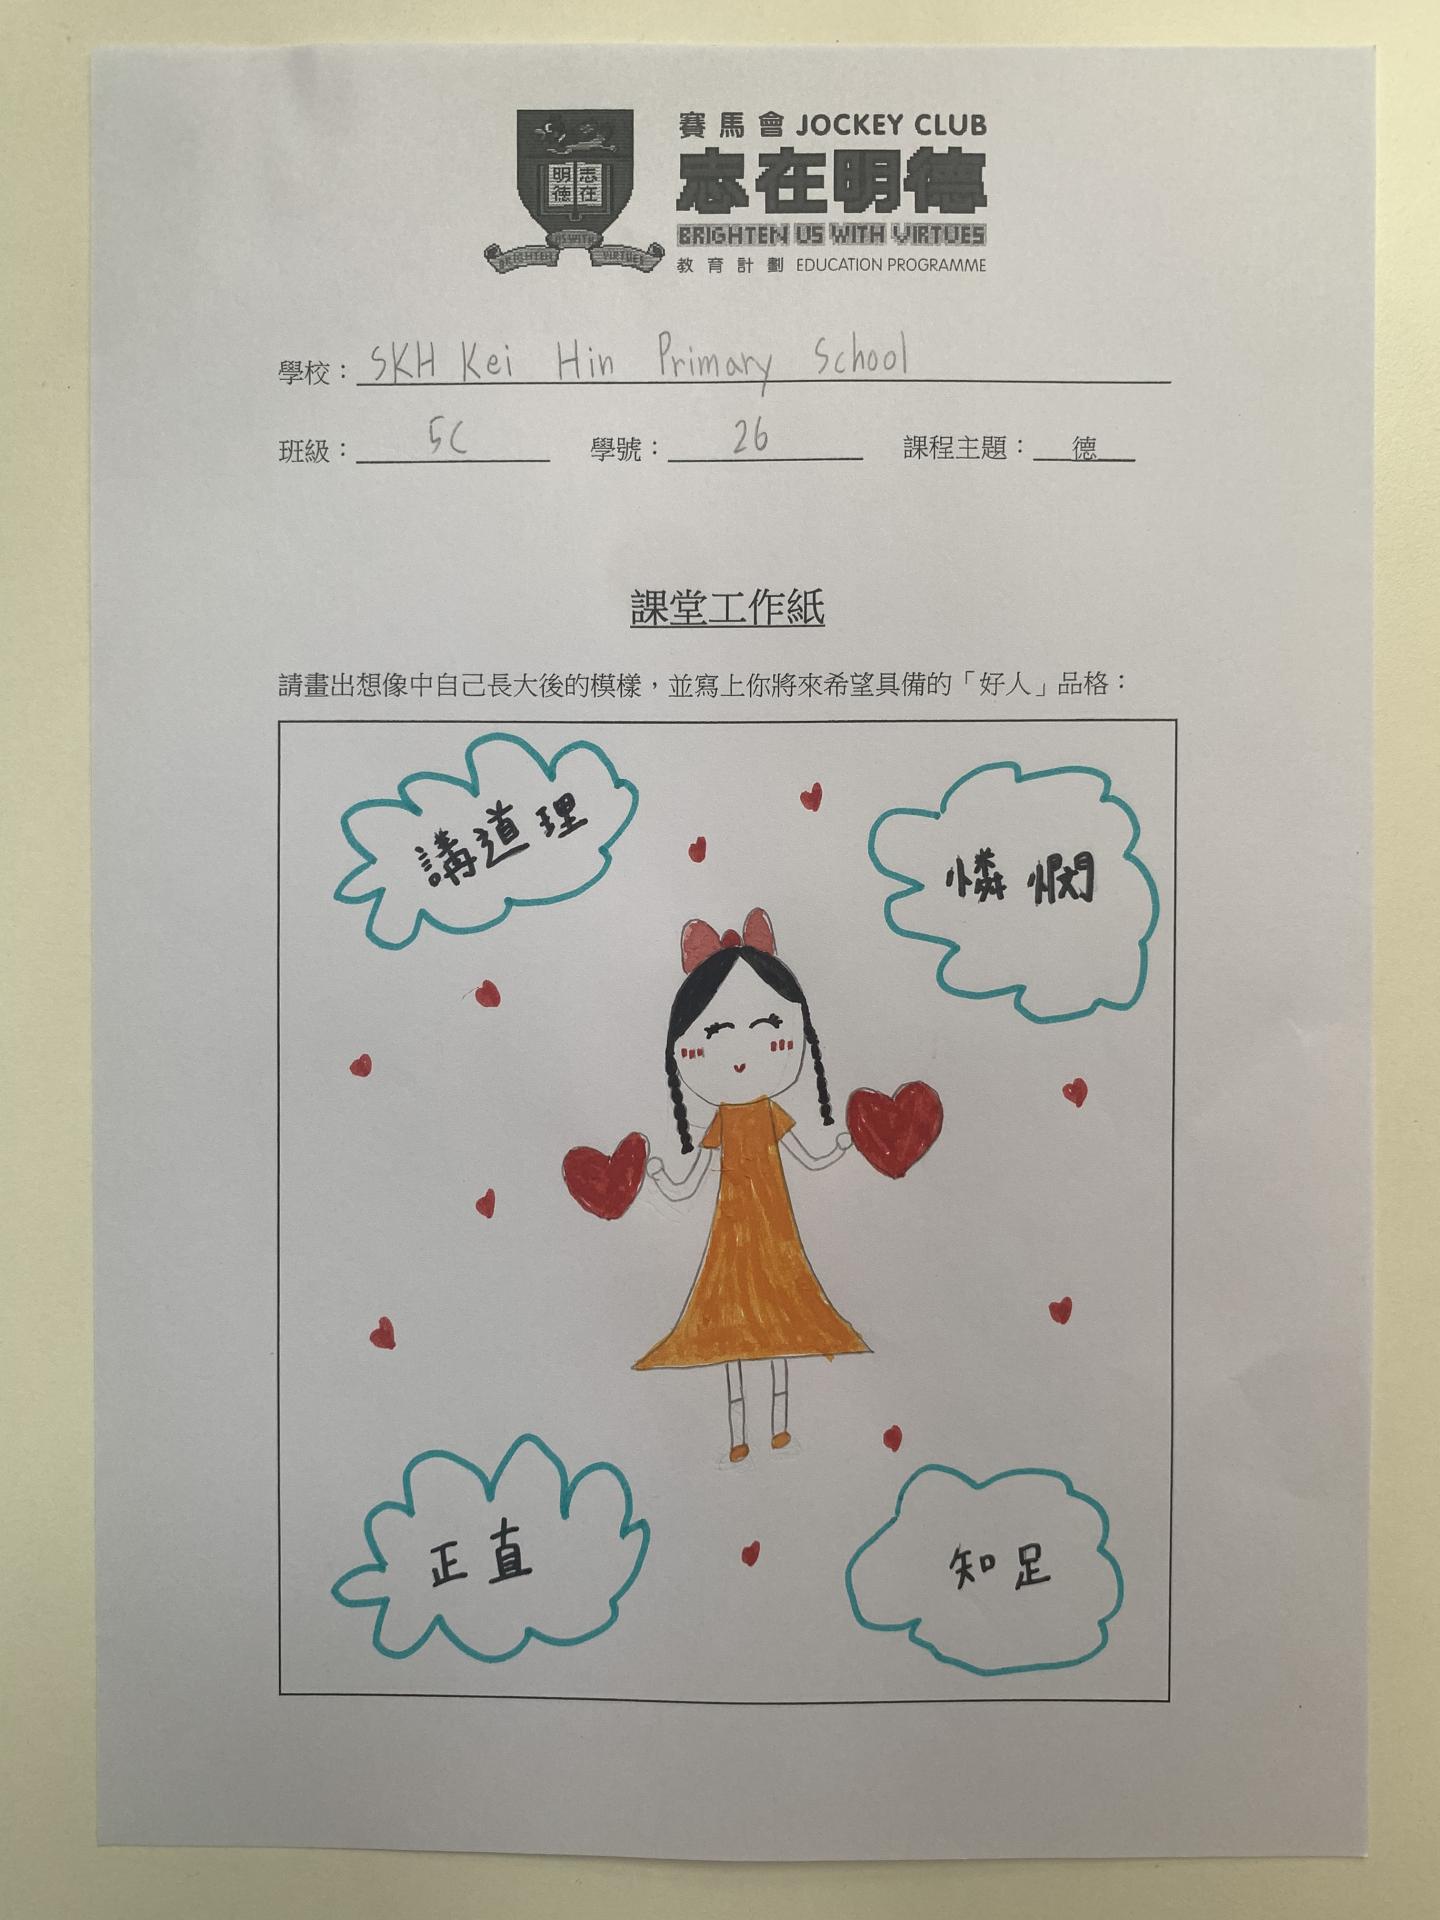 賽馬會 JOCKEY CLUB
志在明德
BRIGHTEN US WITH VIRTUES
教育計劃 EDUCATION PROGRAMME
明德 志在
BRIGHTEN US WITH VIRTUES
學校： SKH Kei Hin Primary School
班級： 5C 學號： 26 課程主題： 德
課堂工作紙
請畫出想像中自己長大後的模樣，並寫上你將來希望具備的「好人」品格：
講道理
憐憫
正直
知足